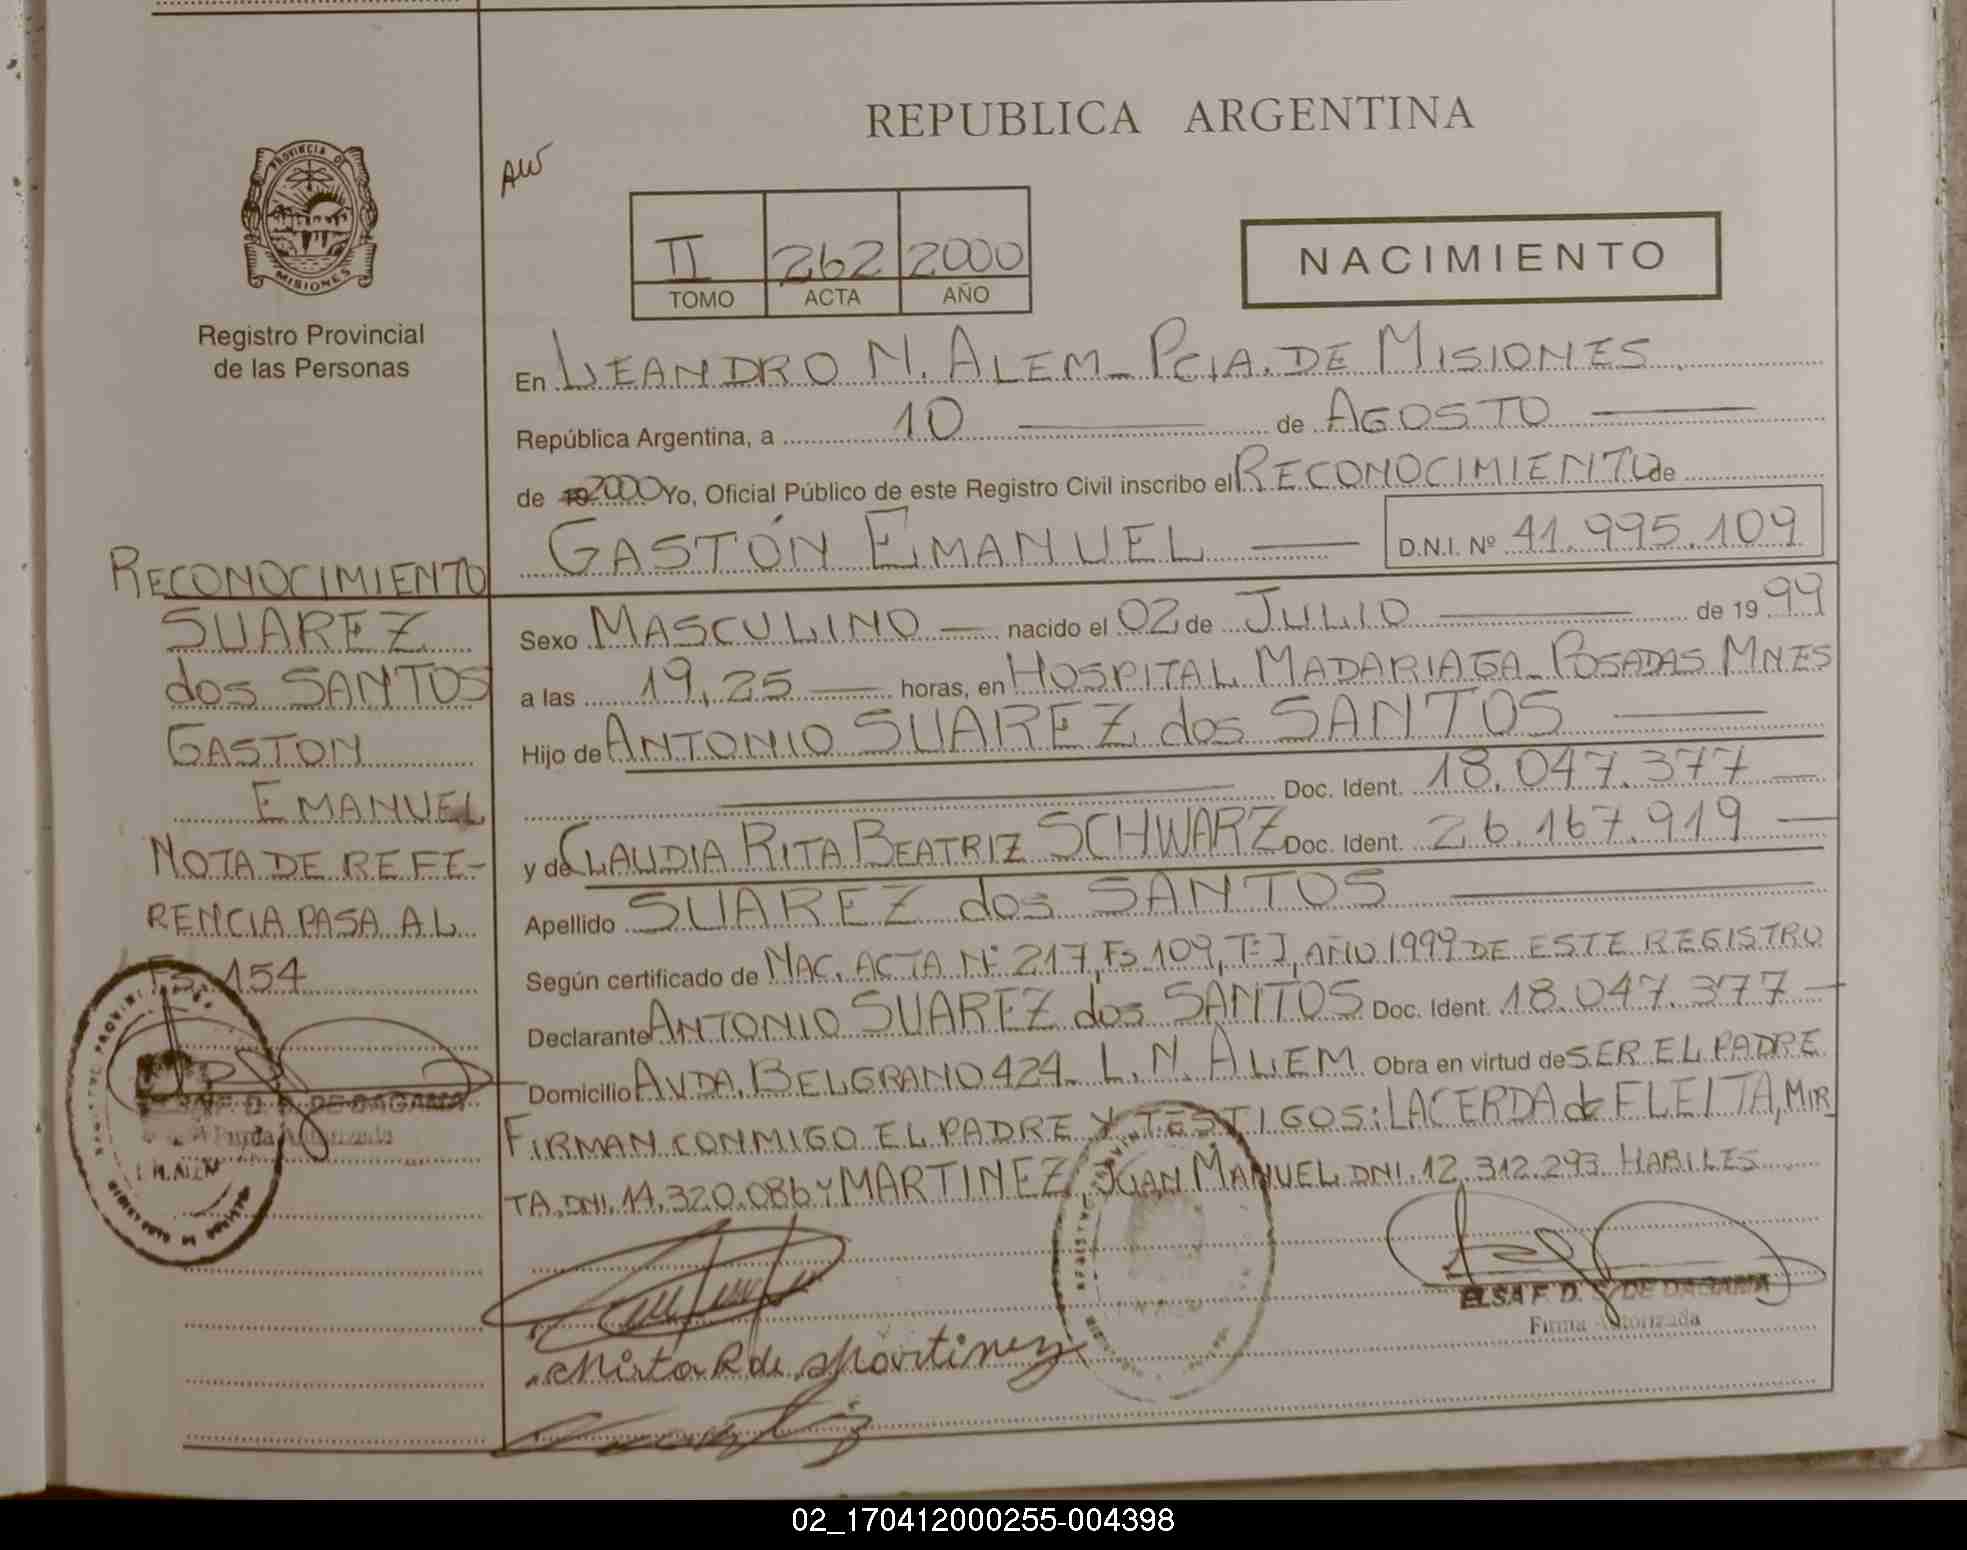 REPUBLICA ARGENTINA
PROVINCIA DE
MISIONES
Registro Provincial
de las Personas
AW
II 262 2000
TOMO ACTA AÑO
NACIMIENTO
En LEANDRO N. ALEM_ PCIA. DE MISIONES
República Argentina, a 10 de AGOSTO
de 19 2000 Yo, Oficial Público de este Registro Civil inscribo el RECONOCIMIENTO de
GASTÓN EMANUEL D.N.I. Nº 41.995.109
RECONOCIMIENTO
SUAREZ
dos SANTOS
GASTON
EMANUEL
NOTA DE REFE-
RENCIA PASA AL
Fs. 154
L.N. ALEM
Sexo MASCULINO nacido el 02 de JULIO de 19 99
a las 19,25 horas, en HOSPITAL MADARIAGA_ POSADAS MNES
Hijo de ANTONIO SUAREZ dos SANTOS
Doc. Ident. 18.047.377
y de CLAUDIA RITA BEATRIZ SCHWARZ Doc. Ident. 26.167.919
Apellido SUAREZ dos SANTOS
Según certificado de NAC. ACTA Nº 217, Fs. 109, Tº I, AÑO 1999 DE ESTE REGISTRO
Declarante ANTONIO SUAREZ dos SANTOS Doc. Ident. 18.047.377
Domicilio AVDA. BELGRANO 424_ L. N. ALEM Obra en virtud de SER EL PADRE
FIRMAN CONMIGO EL PADRE Y TESTIGOS: LACERDA de FLEITA, MIR
TA, DNI. 14.320.086 Y MARTINEZ, JUAN MANUEL DNI. 12.312.293 HABILES
ELSA F. D. S. DE DAGAMA
Firma Autorizada
Mirta R de Martinez
02_170412000255-004398